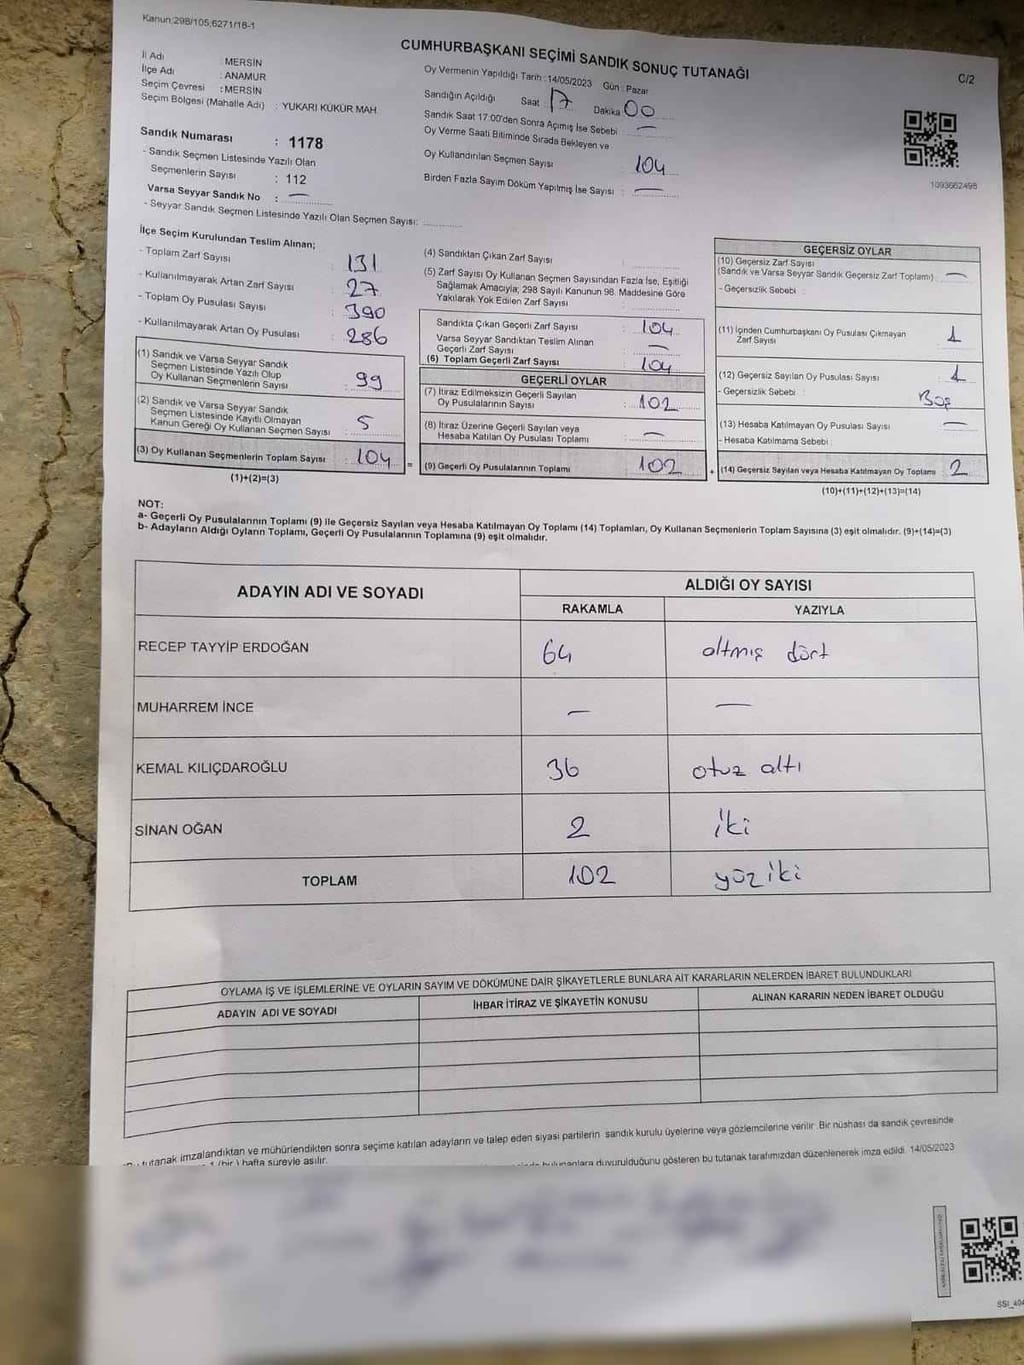 Kanun:298/105,6271/18-1
CUMHURBAŞKANI SEÇİMİ SANDIK SONUÇ TUTANAĞI
C/2
İl Adı : MERSİN
İlçe Adı : ANAMUR
Seçim Çevresi : MERSİN
Seçim Bölgesi (Mahalle Adı) : YUKARI KÜKÜR MAH.
Oy Vermenin Yapıldığı Tarih : 14/05/2023 Gün : Pazar
Sandığın Açıldığı Saat 17 Dakika 00
Sandık Saat 17:00'den Sonra Açımış İse Sebebi —
Oy Verme Saati Bitiminde Sırada Bekleyen ve
Oy Kullandırılan Seçmen Sayısı 104
Birden Fazla Sayım Döküm Yapılmış İse Sayısı : —
1093662498
Sandık Numarası : 1178
- Sandık Seçmen Listesinde Yazılı Olan
Seçmenlerin Sayısı : 112
Varsa Seyyar Sandık No : —
- Seyyar Sandık Seçmen Listesinde Yazılı Olan Seçmen Sayısı:
İlçe Seçim Kurulundan Teslim Alınan;
- Toplam Zarf Sayısı : 131
- Kullanılmayarak Artan Zarf Sayısı : 27
- Toplam Oy Pusulası Sayısı : 390
- Kullanılmayarak Artan Oy Pusulası : 286
(1) Sandık ve Varsa Seyyar Sandık
Seçmen Listesinde Yazılı Olup
Oy Kullanan Seçmenlerin Sayısı : 99
(2) Sandık ve Varsa Seyyar Sandık
Seçmen Listesinde Kayıtlı Olmayan
Kanun Gereği Oy Kullanan Seçmen Sayısı : 5
(3) Oy Kullanan Seçmenlerin Toplam Sayısı : 104
(1)+(2)=(3)
(4) Sandıktan Çıkan Zarf Sayısı
(5) Zarf Sayısı Oy Kullanan Seçmen Sayısından Fazla İse, Eşitliği
Sağlamak Amacıyla; 298 Sayılı Kanunun 98. Maddesine Göre
Yakılarak Yok Edilen Zarf Sayısı
Sandıkta Çıkan Geçerli Zarf Sayısı : 104
Varsa Seyyar Sandıktan Teslim Alınan
Geçerli Zarf Sayısı : —
(6) Toplam Geçerli Zarf Sayısı : 104
GEÇERLİ OYLAR
(7) İtiraz Edilmeksizin Geçerli Sayılan
Oy Pusulalarının Sayısı : 102
(8) İtiraz Üzerine Geçerli Sayılan veya
Hesaba Katılan Oy Pusulası Toplamı : —
= (9) Geçerli Oy Pusulalarının Toplamı : 102
GEÇERSİZ OYLAR
(10) Geçersiz Zarf Sayısı
(Sandık ve Varsa Seyyar Sandık Geçersiz Zarf Toplamı) : —
- Geçersizlik Sebebi :
(11) İçinden Cumhurbaşkanı Oy Pusulası Çıkmayan
Zarf Sayısı : 1
(12) Geçersiz Sayılan Oy Pusulası Sayısı : 1
- Geçersizlik Sebebi : Boş
(13) Hesaba Katılmayan Oy Pusulası Sayısı : —
- Hesaba Katılmama Sebebi :
+ (14) Geçersiz Sayılan veya Hesaba Katılmayan Oy Toplamı : 2
(10)+(11)+(12)+(13)=(14)
NOT:
a- Geçerli Oy Pusulalarının Toplamı (9) ile Geçersiz Sayılan veya Hesaba Katılmayan Oy Toplamı (14) Toplamları, Oy Kullanan Seçmenlerin Toplam Sayısına (3) eşit olmalıdır. (9)+(14)=(3)
b- Adayların Aldığı Oyların Toplamı, Geçerli Oy Pusulalarının Toplamına (9) eşit olmalıdır.
ADAYIN ADI VE SOYADI
ALDIĞI OY SAYISI
RAKAMLA YAZIYLA
RECEP TAYYİP ERDOĞAN 64 altmış dört
MUHARREM İNCE — —
KEMAL KILIÇDAROĞLU 36 otuz altı
SİNAN OĞAN 2 iki
TOPLAM 102 yüz iki
OYLAMA İŞ VE İŞLEMLERİNE VE OYLARIN SAYIM VE DÖKÜMÜNE DAİR ŞİKAYETLERLE BUNLARA AİT KARARLARIN NELERDEN İBARET BULUNDUKLARI
ADAYIN ADI VE SOYADI İHBAR İTİRAZ VE ŞİKAYETİN KONUSU ALINAN KARARIN NEDEN İBARET OLDUĞU
tutanak imzalandıktan ve mühürlendikten sonra seçime katılan adayların ve talep eden siyasi partilerin sandık kurulu üyelerine veya gözlemcilerine verilir. Bir nüshası da sandık çevresinde
1 (bir) hafta süreyle asılır. bulunanlara duyurulduğunu gösteren bu tutanak tarafımızdan düzenlenerek imza edildi. 14/05/2023